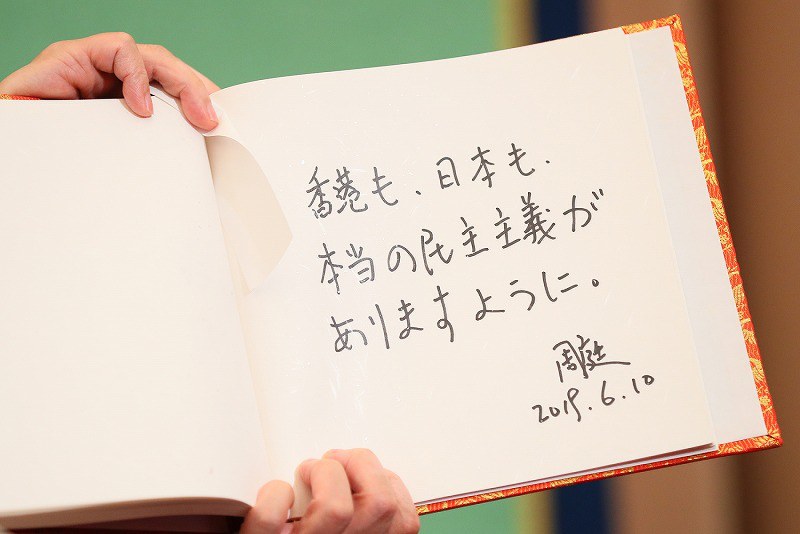 香港も、日本も、
本当の民主主義が
ありますように。
周庭
2019.6.10